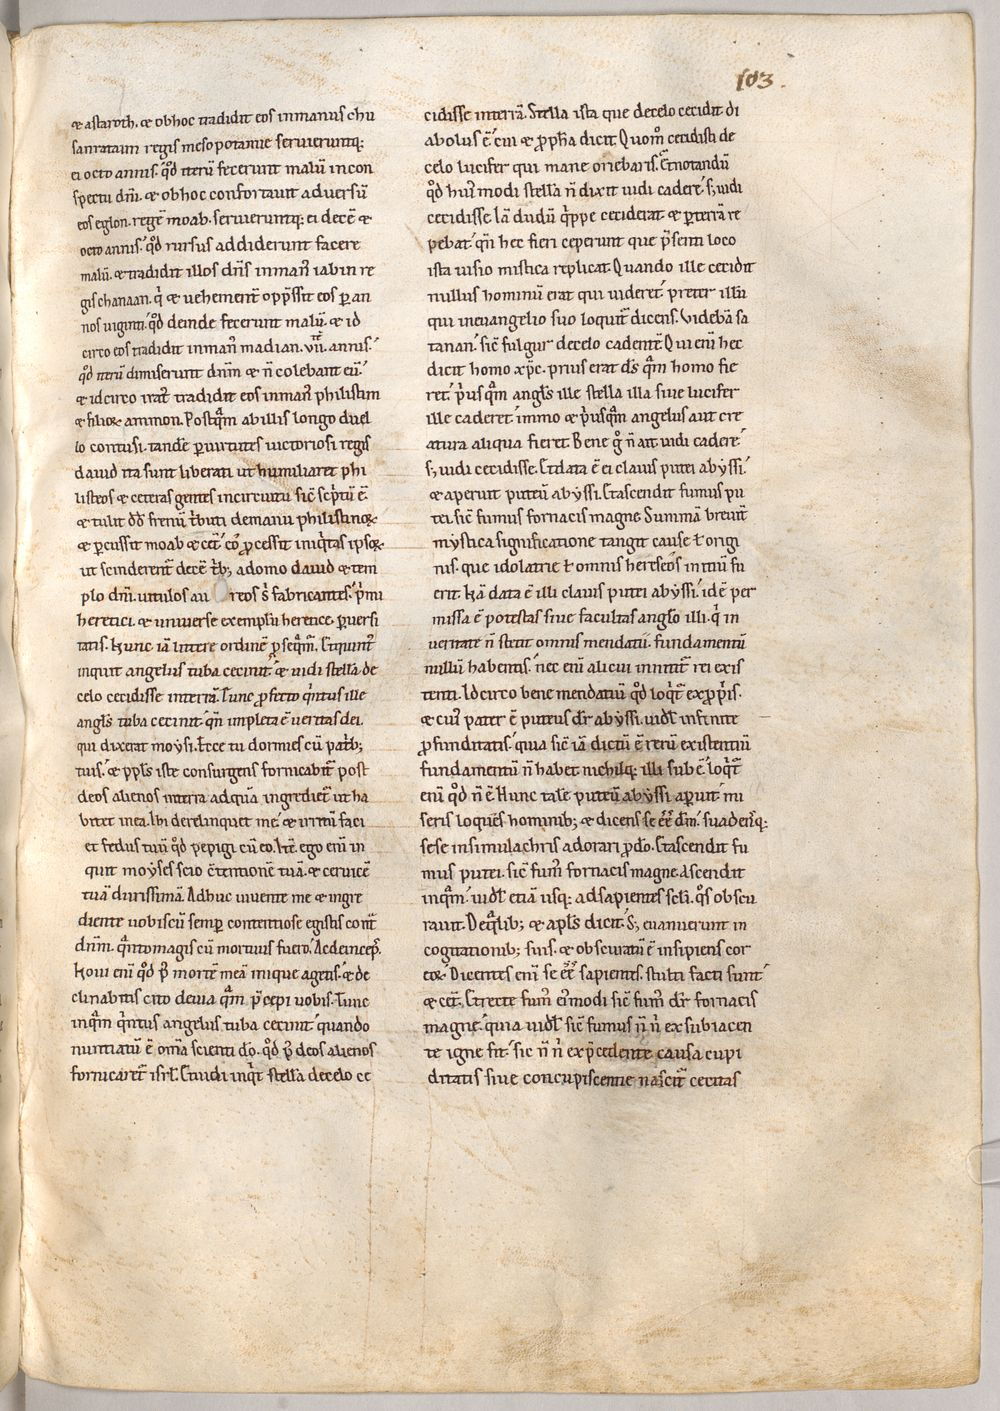 103.
& astaroth. & ob hoc tradidit eos in manus chu
sanrataim regis mesopotamie servieruntq;
ei octo annis. q̇d iterū fecerunt malū in con
spectu dn̄i. & ob hoc confortavit adversū
eos eglon. regē moab. servieruntq; ei decē &
octo annis. q̇d rursus addiderunt facere
malū. & tradidit illos dn̄s in man̄ iabin re
gis chanaan. q̇ & vehement̄ opp̄ssit eos p̱ an
nos viginti. q̇d deinde fecerunt malū. & id
circo eos tradidit in man̄ madian. vii. annis.
q̇d iterū dimiserunt dn̄m & n̄ colebant eū.
& idcirco irat᷒ tradidit eos in man̄ philistim
& filioꝝ ammon. Postq̄m ab illis longo duel
lo contusi. tandē p̱ virtutes victoriosi regis
david ita sunt liberati ut humiliaret phi
listeos & ceteras gentes in circuitu sic̄ sċptū ē.
& tulit dd̄ frenū ṫbuti de manu philistinoꝝ
& p̱cussit moab & cet̄. eo᷒ p̱cessit iniq̇tas ipsoꝝ
ut scinderent̄ decē ṫb; a domo david & tem
plo dn̄i. vitulos au reos s̄ fabricantes. ṗmi
heretici. & universe exemplū heretice p̱versi
tatis. Nunc iā litere ordinē p̱seq̄m̄. Et quint᷒
inquit angelus tuba cecinit. & vidi stellā de
celo cecidisse in terrā. Tunc p̱fecto q̇ntus ille
angl̄s tuba cecinit. qn̄ impleta ē veritas dei.
qui dixerat moysi. Ecce tu dormies cū patrib;
tuis. & pp̄ls iste consurgens fornicabit̄ post
deos alienos in terra ad quā ingrediet̄ ut ha
bitet in ea. Ibi derelinquet me. & irritū faci
et fedus tuū q̇d pepigi cū eo. Itē. ego eni in
quit moyses scio c̄tentionē tuā. & cervicē
tuā durissimā. Adhuc vivente me & ingre
diente vobiscū semp̱ contentiose egistis cont̄
dn̄m. q̄nto magis cū mortuus fuero. Ac deincep̱.
Novi eni q̇d p᷒ mortē meā inique agetis. & de
clinabitis cito de via q̄m p̄cepi vobis. Tunc
inq̄m q̇ntus angelus tuba cecinit. quando
nuntiatū ē om̄ia scienti dō. q̇d p᷒ deos alienos
fornicaret̄ isrl̄. Et vidi inq̇t stellā de celo ce
cidisse in terrā. Stella ista que de celo cecidit di
abolus ē. cui & p̱ph̄a dicit. Quom̄ cecidisti de
celo lucifer qui mane oriebaris. Et notandū
q̇d hui᷒modi stellā n̄ dixit vidi cadere. s; vidi
cecidisse. Iā dudū q̇ppe ceciderat & p̱ terrā re
pebat. qn̄ hec fieri ceperunt que p̄senti loco
ista visio mistica replicat. Quando ille cecidit
nullus hominū erat qui videret. preter illū
qui in evangelio suo loquit̄ dicens. Videbā sa
tanan. sic̄ fulgur de celo cadentē. Qui eni hec
dicit homo xp̄c. prius erat ds̄ q̄m homo fie
ret. ṗusq̄m angl̄s ille stella illa sive lucifer
ille caderet. immo & ṗusq̄m angelus aut cre
atura aliqua fieret. Bene g̊ n̄ ait vidi cadere.
s; vidi cecidisse. Et data ē ei clavis putei abyssi.
& aperuit puteū abyssi. Et ascendit fumus pu
tei. sic̄ fumus fornacis magne. Summā brevit̄
mystica significatione tangit cause ł origi
nis. que idolatrie ł omnis hereseos initiū fu
erit. Nā data ē illi clavis putei abyssi. id ē per
missa ē potestas sive facultas angl̄o illi. q̇ in
veritate n̄ stetit omnis mendatii. fundamentū
nullū habentis. nec eni alicui innitit̄ rei exis
tenti. Idcirco bene mendatiū q̇d loq̇t̄ ex p̱ṗis.
& cui᷒ pater ē puteus dr̄ abyssi. vidl̄ infinite
p̱funditatis. quia sic̄ iā dictū ē rerū existentiū
fundamentū n̄ habet nichilq; illi subē. loq̇t̄
eni q̇d n̄ ē. Hunc talē puteū abyssi ap̱uit mi
seris loquēs hominib; & dicens se ēē dm̄. suadensq;
sese in simulachris adorari p̱ dō. Et ascendit fu
mus putei. sic̄ fum᷒ fornacis magne. Ascendit
inq̄m. vidl̄ etiā usq; ad sapientes scl̄i. q̊s obscu
ravit. De q̇b; & apl̄s dicit. S; evanuerunt in
cogitationib; suis. & obscuratū ē insipiens cor
eoꝝ. Dicentes eni se ēē sapientes. stulti facti sunt
& cet̄. Et recte fum᷒ ei᷒modi sic̄ fum᷒ dr̄ fornacis
magne. quia vidl̄ sic̄ fumus n̄ ṅ ex subiacen
te igne fit. sic n̄ ṅ ex p̄cedente causa cupi
ditatis sive concupiscentie nascit̄ cecitas